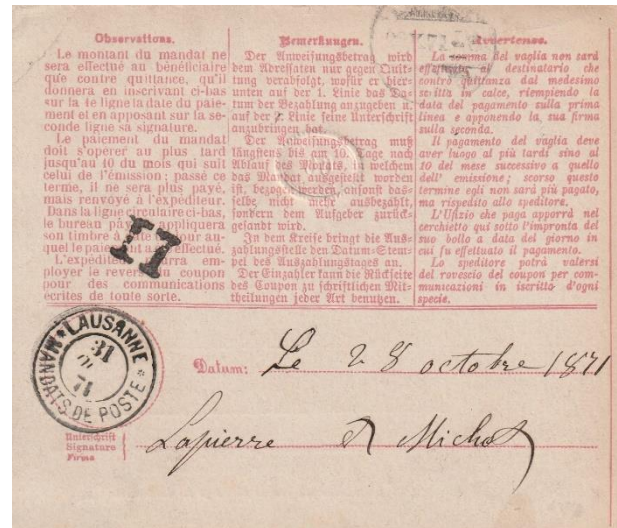 Observations.
Le montant du mandat ne
sera effectué au bénéficiaire
que contre quittance, qu'il
donnera en inscrivant ci-bas
sur la 1e ligne la date du paie-
ment et en apposant sur la se-
conde ligne sa signature.
Le paiement du mandat
doit s'opérer au plus tard
jusqu'au 10 du mois qui suit
celui de l'émission; passé ce
terme, il ne sera plus payé,
mais renvoyé à l'expéditeur.
Dans la ligne circulaire ci-bas,
le bureau appliquera
son timbre à
quel le paiement effectué.
L'expéditeur pourra em-
ployer le revers du coupon
pour des communications
écrites de toute sorte.
Bemerkungen.
Der Anweisungsbetrag wird
dem Adressaten nur gegen Quit-
tung verabfolgt, wofür er hier-
unten auf der 1. Linie das Da-
tum der Bezahlung anzugeben u.
auf der 2. Linie seine Unterschrift
anzubringen hat.
Der Anweisungsbetrag muß
längstens bis am 10. Tage nach
Ablauf des Monats, in welchem
das Mandat ausgestellt worden
ist, bezogen werden, ansonst das-
selbe nicht mehr ausbezahlt,
sondern dem Aufgeber zurück-
gesandt wird.
In dem Kreise bringt die Aus-
zahlungsstelle den Datum-Stem-
pel des Auszahlungstages an.
Der Einzahler kann die Rückseite
des Coupon zu schriftlichen Mit-
theilungen jeder Art benutzen.
Avvertenze.
La somma del vaglia non sarà
effettuata al destinatario che
contro quittanza dal medesimo
scritta in calce, riempiendo la
data del pagamento sulla prima
linea e apponendo la sua firma
sulla seconda.
Il pagamento del vaglia deve
aver luogo al più tardi sino al
10 del mese successivo a quello
dell' emissione; scorso questo
termine egli non sarà più pagato,
ma rispedito allo speditore.
L'Ufizio che paga apporrà nel
cerchietto qui sotto l'impronta del
suo bollo a data del giorno in
cui fu effettuato il pagamento.
Lo speditore potrà valersi
del rovescio del coupon per com-
municazioni in iscritto d'ogni
specie.
17
LAUSANNE
31
71
MANDATS DE POSTE
Datum: Le 28 octobre 1871
Unterschrift
Signature
Firma
Lapierre & Michot